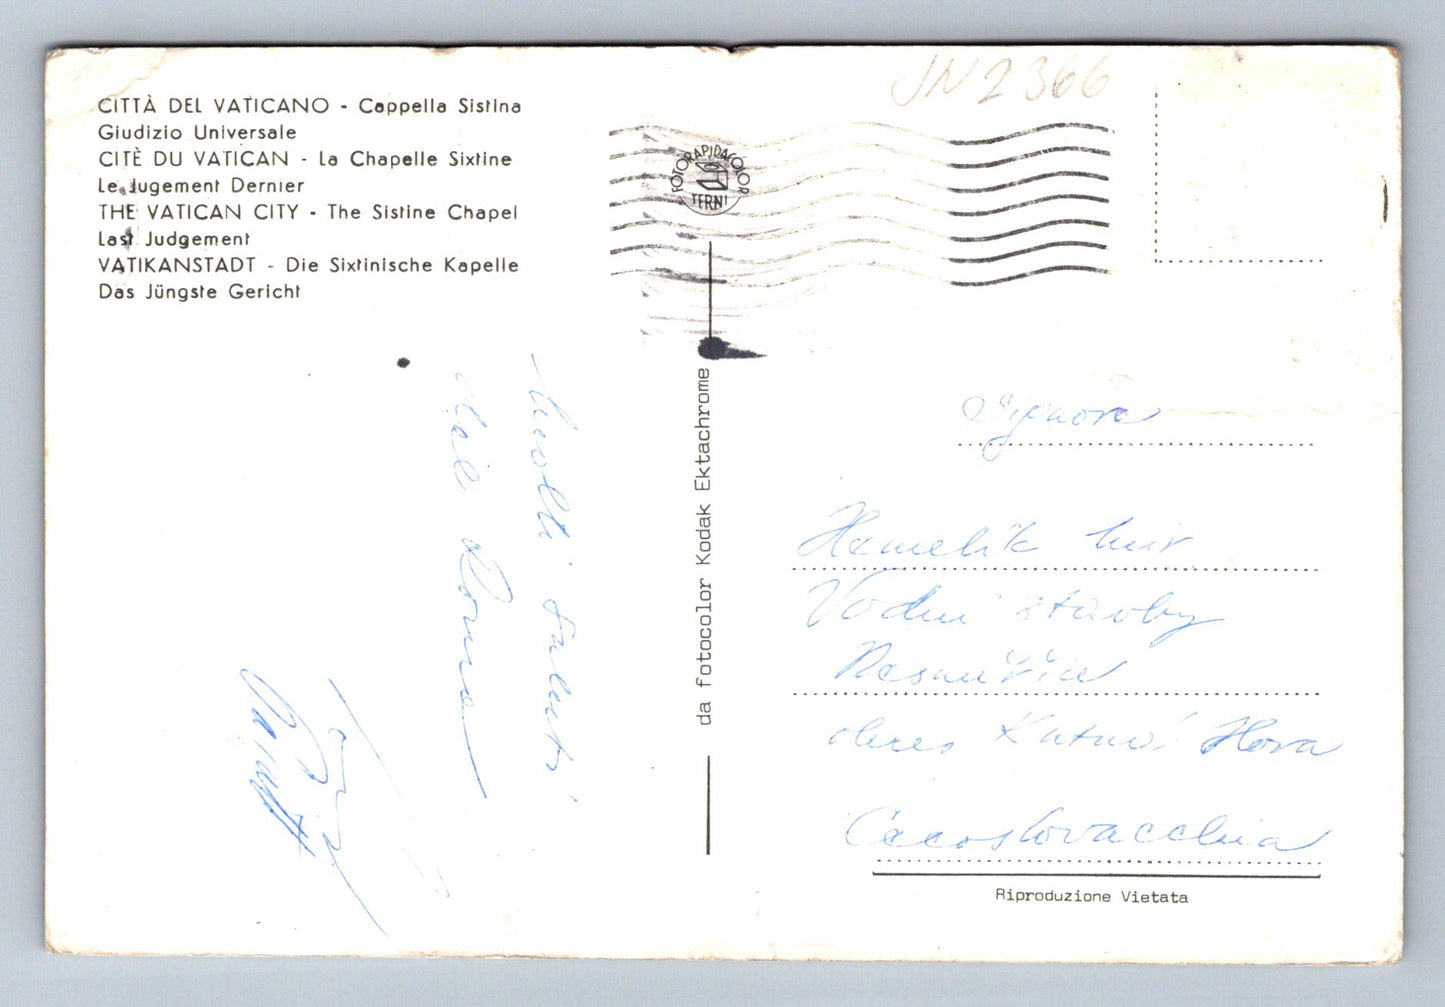 CITTÀ DEL VATICANO - Cappella Sistina
Giudizio Universale
CITÈ DU VATICAN - La Chapelle Sixtine
Le Jugement Dernier
THE VATICAN CITY - The Sistine Chapel
Last Judgement
VATIKANSTADT - Die Sixtinische Kapelle
Das Jüngste Gericht
JN2366
FOTORAPIDACOLOR
TERNI
da fotocolor Kodak Ektachrome
Saluti
Roma
Signora
Hamelik
Vodní stavby
Kutná Hora
Cecoslovacchia
Riproduzione Vietata